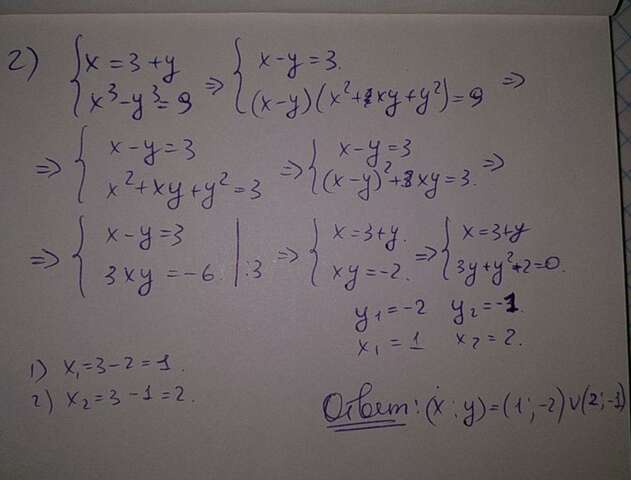 2) { x = 3 + y ⇒ { x - y = 3. ⇒
x³ - y³ = 9 (x - y)(x² + xy + y²) = 9
⇒ { x - y = 3 ⇒ { x - y = 3 ⇒
x² + xy + y² = 3 (x - y)² + 3xy = 3.
⇒ { x - y = 3 | :3 ⇒ { x = 3 + y. ⇒ { x = 3 + y
3xy = -6. xy = -2. 3y + y² + 2 = 0.
y₁ = -2 y₂ = -1.
x₁ = 1 x₂ = 2.
1) x₁ = 3 - 2 = 1.
2) x₂ = 3 - 1 = 2.
Ответ: (x; y) = (1; -2) ∪ (2; -1)